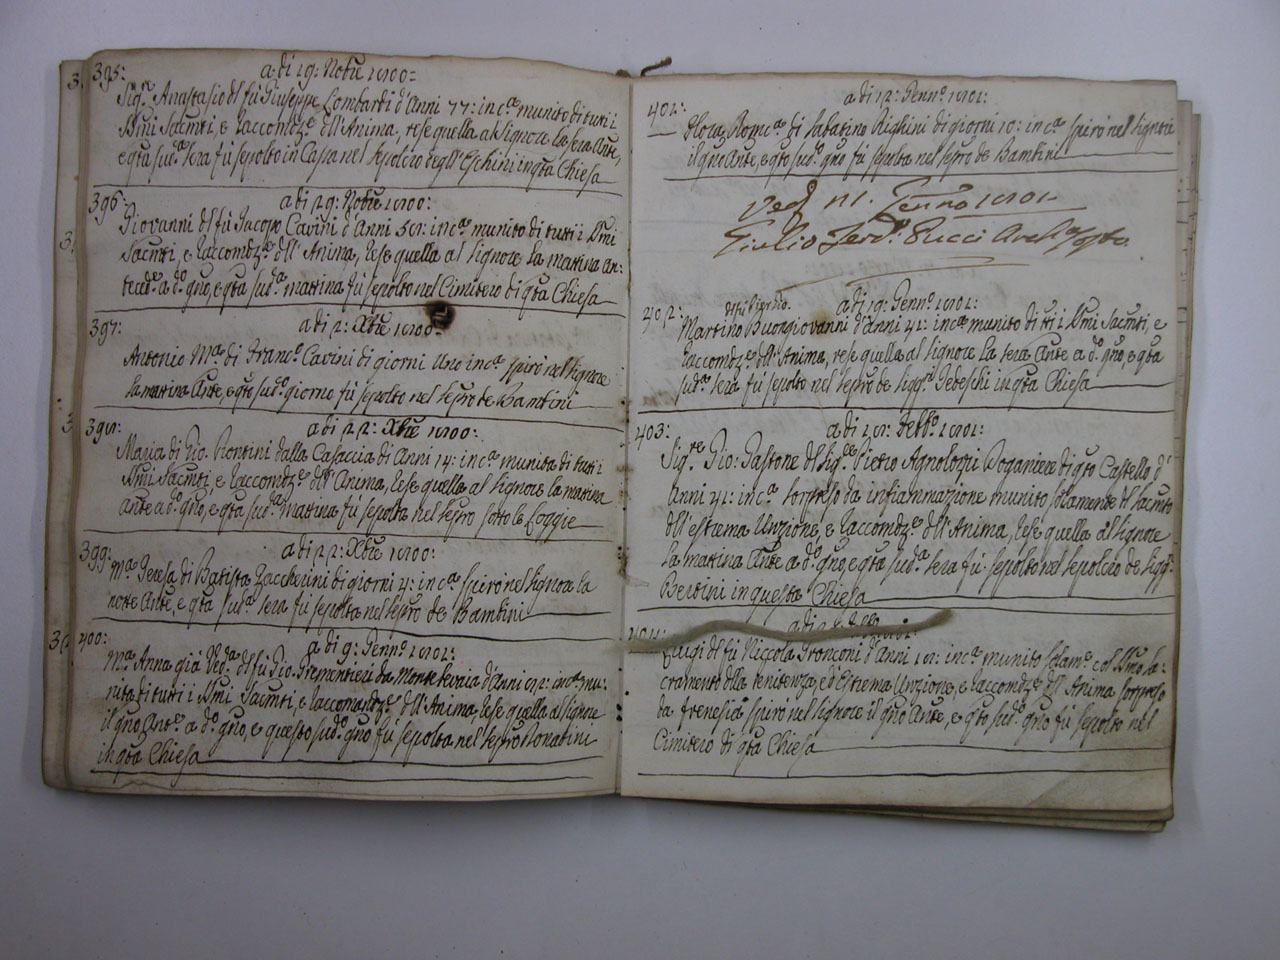 395:
a dì 19: Nobre 1800=
Sigr. Anastasio del fù Giuseppe Lombardi d'Anni 77: in ca. munito di tutti i
SSmi Sacmti, e Raccomdze. dell'Anima, rese quella al Signore la sera Ante,
e qta sudª. sera fù sepolto in Cassa nel sepolcro degli Eschini in qta Chiesa
396:
a dì 29: Nobre 1800:
Giovanni del fù Jacopo Cavini d'Anni 58: in ca. munito di tutti i SSmi
Sacmti, e Raccomdze. dell'Anima, rese quella al Signore la mattina An=
teced. a do. gno, e qta sudª. mattina fù sepolto nel Cimitero di qta Chiesa
397:
a dì 2: Xbre 1800=
Antonio Mª. di Franco. Cavini di giorni Uno in ca. spirò nel Signore
la mattina Ante, e qto sudo. giorno fù sepolto nel sepro de Bambini
398:
a dì 22: Xbre 1800:
Maria di Gio. Fiontini dalla Casaccia di Anni 14: in ca. munita di tutti i
SSmi Sacmti, e Raccomdze. dell'Anima, rese quella al Signore la mattina
Ante a do. gno, e qta sudª. mattina fù sepolta nel sepro sotto le Loggie
399:
a dì 22: Xbre 1800:
Mª. Teresa di Batista Zaccherini di giorni 4: in ca. spirò nel Signore la
notte Ante, e qta sudª. sera fù sepolta nel sepro de Bambini
400:
a dì 9: Genno. 1801:
Mª. Anna già Vedª. del fù Gio. Frementieri da Monte d'Anni 82: in ca. mu=
nita di tutti i SSmi Sacmti, e Raccomandze. dell'Anima, rese quella al Signore
il gno Ante. a do. gno, e questo sudo. gno fù sepolta nel sepro Donatini
in qta Chiesa
401:
a dì 12: Genno. 1801:
Flora Domca. di Sabatino Righini di giorni 10: in ca. spirò nel Signore
il gno Ante, e qto sudo. gno fù sepolta nel sepro de Bambini
Genno 1801.
Giulio Ferdo. Pucci
402:
a dì 19: Genno. 1801:
del fù Pier
Martino Buongiovanni d'Anni 42: in ca. munito di tti i SSmi Sacmti, e
Raccomdze. dell'Anima, rese quella al Signore la sera Ante a do. gno, e qta
sudª. sera fù sepolto nel sepro de Siggri. Tedeschi in qta Chiesa
403:
a dì 18: Febbo. 1801:
Sigre. Gio: Gastone del Sigre. Pietro Agnolozzi Doganiere di qto Castello d'
Anni 42: in ca. sorpreso da infiammazione munito solamente del Sacmto
dell'estrema Unzione, e Raccomdze. dell'Anima, rese quella al Signore
la mattina Ante a do. gno, e qta sudª. sera fù sepolto nel sepolcro de Sigg.
Bertini in questa Chiesa
404:
Luigi del fù Niccola Fronconi d'Anni 18: in ca. munito solame. col SSmo Sa=
cramento della Penitenza, ed Estrema Unzione, e Raccomdze. dell'Anima sorpreso
da frenesia spirò nel Signore il gno Ante, e qto sudo. gno fù sepolto nel
Cimitero di qta Chiesa